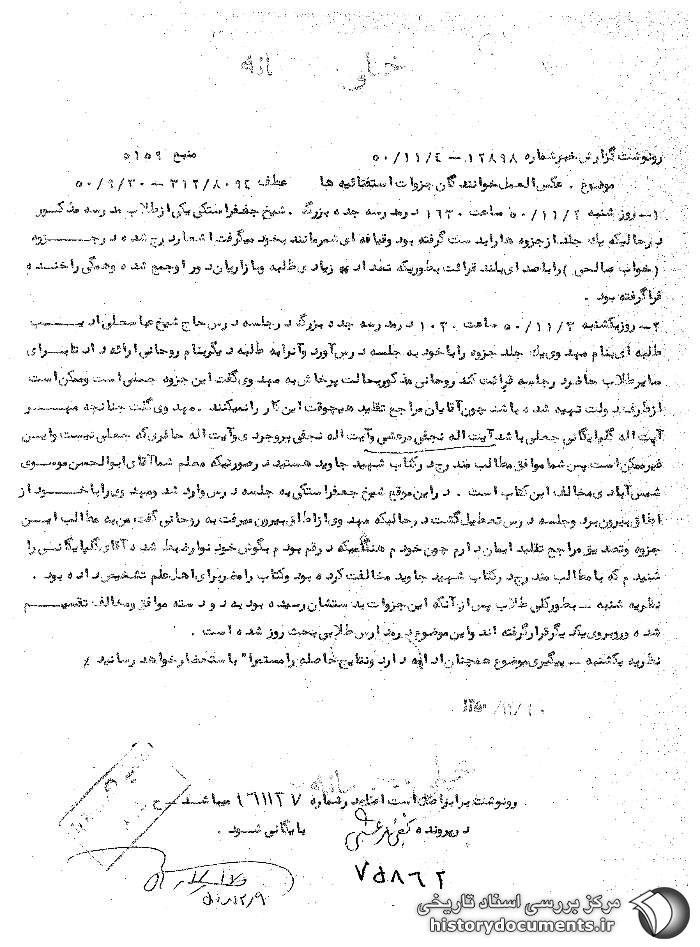 خیلی
رونوشت گزارش خبر شماره ۱۲۸۹۸ – ۵۰/۱۱/۴ منبع ۵۱۵۹
موضوع . عکس العمل خوانندگان جزوات استفتائیه ها عطف ۳۱۲/۸۰۹۴ – ۵۰/۹/۳۰
۱– روز شنبه ۵۰/۱۱/۲ ساعت ۱۶۳۰ در مدرسه جده بزرگ . شیخ جعفر استکی یکی از طلاب مدرسه مذکور
در حالیکه یک جلد از جزوه ها را بدست گرفته بود و قیافه ای شعر مانند بخود میگرفت اشعار درج شده در جزوه
(خواب صالحی) را با صدای بلند قرائت بطوریکه تعداد زیادی طلبه و بازاریان دور او جمع شده و همگی را خنده
فرا گرفته بود .
۲– روز یکشنبه ۵۰/۱۱/۳ ساعت ۱۰۳۰ در مدرسه جده بزرگ در جلسه درس حاج شیخ عباسعلی ادیب
طلبه ای بنام مهدوی یک جلد جزوه را با خود به جلسه درس آورد و آنرا به طلبه دیگر بنام روحانی ارائه داد تا برای
سایر طلاب حاضر در جلسه قرائت کند روحانی مذکور بحالت پرخاش به مهدوی گفت این جزوه جعلی است و ممکن است
از طرف دولت تهیه شده باشد چون آقایان مراجع تقلید هیچوقت این کار را نمیکنند . مهدوی گفت چنانچه مهر
آیت اله گلپایگانی جعلی باشد آیت اله نجفی مرعشی و آیت اله نجفی بروجردی و آیت اله حائری که جعلی نیست و این
غیر ممکن است پس شما موافق مطالب مندرج در کتاب شهید جاوید هستید در صورتیکه معلم شما آقای ابوالحسن موسوی
شمس آبادی مخالف این کتاب است . در این موقع شیخ جعفر استکی به جلسه درس وارد شد و مهدوی را با خود از
اطاق بیرون برد و جلسه درس تعطیل گشت در حالیکه مهدوی از اطاق بیرون میرفت به روحانی گفت، من به مطالب این
جزوه و تصدیق مراجع تقلید ایمان دارم چون خودم هنگامیکه در قم بودم بگوش خود نوار ضبط شده آقای گلپایگانی را
شنیدم که با مطالب مندرج در کتاب شهید جاوید مخالفت کرده بود و کتاب را مضر برای اهل علم تشخیص داده بود .
نظریه شنبه – بطور کلی طلاب پس از آنکه این جزوات بدستشان رسیده بود به دو دسته موافق و مخالف تقسیم
شده و روبروی یکدیگر قرار گرفته اند و این موضوع در مدارس طلابی بحث روز شده است .
نظریه یکشنبه – پیگیری موضوع همچنان ادامه دارد و نتایج حاصله را مستمرا" باستحضار خواهد رسانید ٪
رونوشت برابر اصل است اصل در شماره ۱۶۱۱۲۷ میباشد ح
در پرونده نجفی مرعشی بایگانی شود .
۷۵۸۶۲
۵۰/۱۲/۹
مرکز بررسی اسناد تاریخی
historydocuments.ir